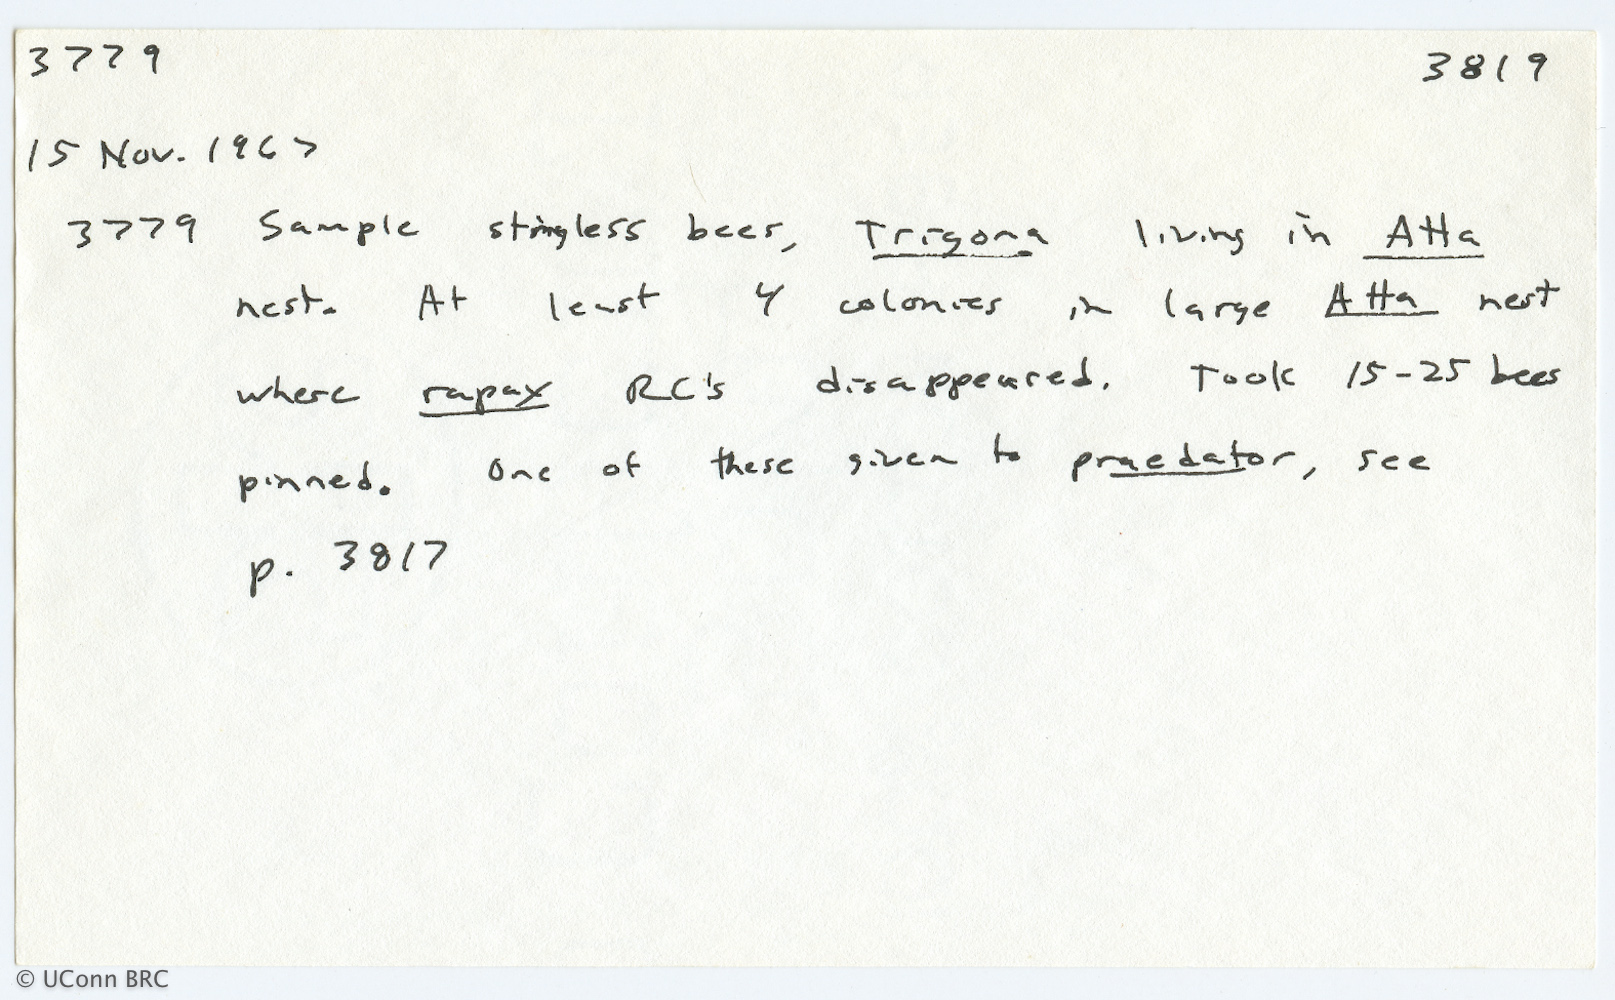 3779 3819
15 Nov. 1967
3779 Sample stingless bees, Trigona living in Atta
nest. At least 4 colonies in large Atta nest
where rapax RC's disappeared. Took 15-25 bees
pinned. One of these given to praedator, see
p. 3817
© UConn BRC